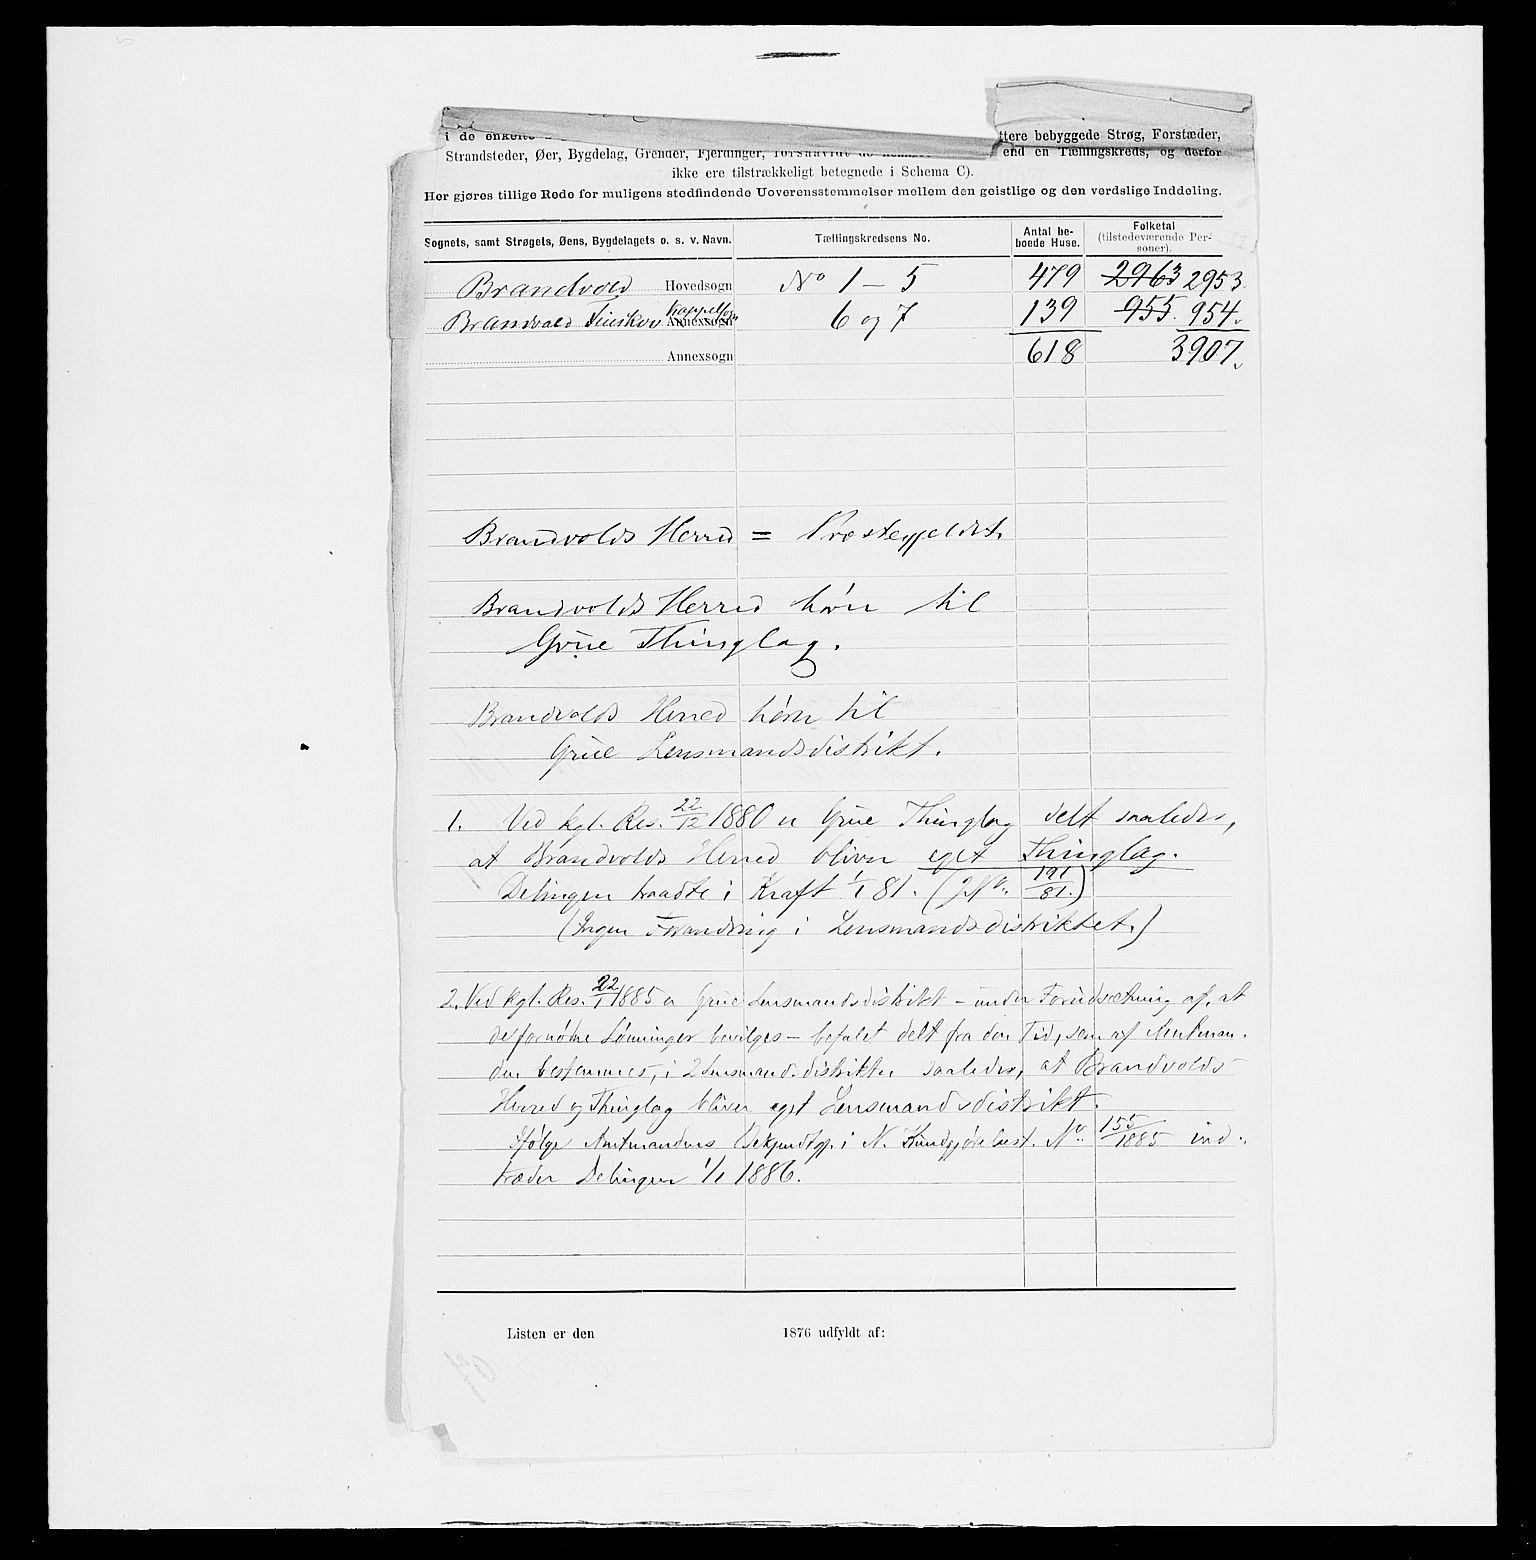 i de enkelte
ttere bebyggede Strøg, Forstæder,
Strandsteder, Øer, Bygdelag, Grender, Fjerdinger, forsaavidt de
end en Tællingskreds, og derfor
ikke ere tilstrækkeligt betegnede i Schema C).
Her gjøres tillige Rede for muligens stedfindende Uoverensstemmelser mellem den geistlige og den verdslige Inddeling.
Sognets, samt Strøgets, Øens, Bygdelagets o. s. v. Navn. Tællingskredsens No. Antal beboede Huse. Folketal (tilstedeværende Personer).
Brandvold Hovedsogn No 1 – 5 479 2963 2953
Brandvold Finskov Kappelsogn Annexsogn 6 og 7 139 955. 954.
Annexsogn 618 3907
Brandvolds Herred = Præstegjeldet.
Brandvolds Herred hører til
Grue Thinglag.
Brandvolds Herred hører til
Grue Lensmandsdistrikt.
1. Ved kgl. Res. 22/12 1880 er Grue Thinglag delt saaledes,
at Brandvolds Herred bliver eget Thinglag.
Delingen traadte i Kraft 1/1 81. ( 191/81.)
(Ingen Forandring i Lensmandsdistriktet.)
2. Ved kgl. Res. 22/1 1885 er Grue Lensmandsdistrikt – under Forudsætning af, at
de fornødne Lønninger bevilges – befalet delt fra den Tid, som af Amtman-
den bestemmes, i 2 Lensmandsdistrikter saaledes, at Brandvolds
Herred og Thinglag bliver eget Lensmandsdistrikt.
Ifølge Amtmandens Bekjendtgj. i N. Kundgjørelsest. No 155/1885 ind-
træder Delingen 1/1 1886.
Listen er den 1876 udfyldt af: